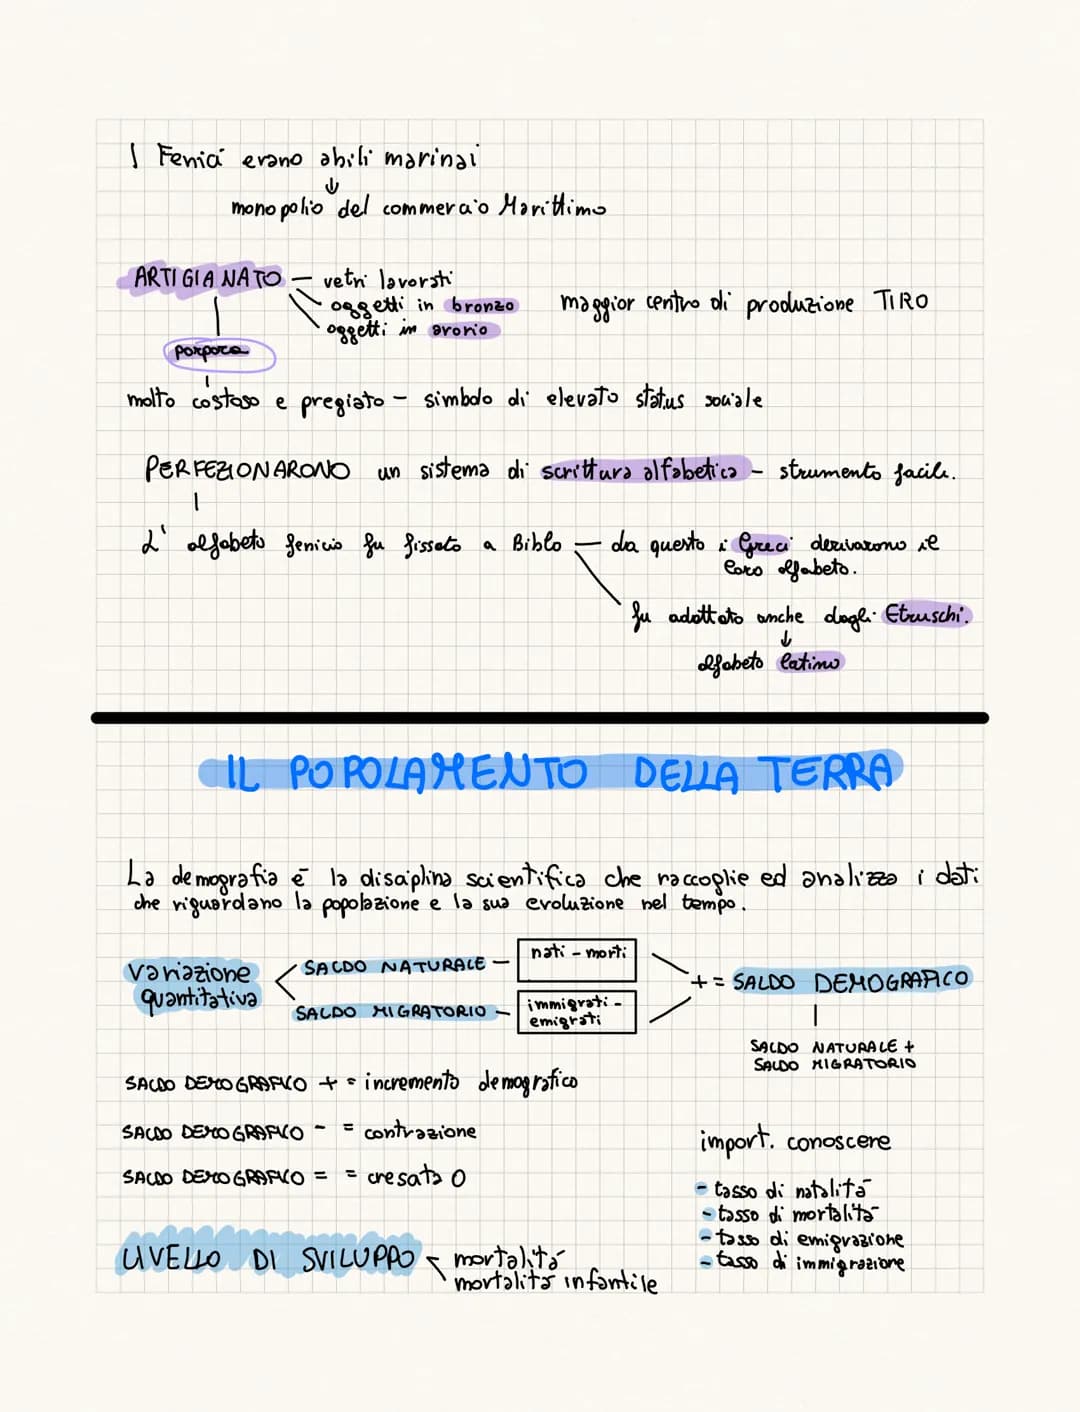 I Fenici erano abili marinai
↓
monopolio del commercio Marittimo
ARTIGIANATO — vetri lavorati
oggetti in bronzo
oggetti in avorio
maggior centro di produzione TIRO
porpora
molto costoso e pregiato - simbolo di elevato status sociale
PERFEZIONARONO un sistema di scrittura alfabetica - strumento facile.
L' alfabeto fenicio fu fissato a Biblo — da questo i Greci derivarono il
loro alfabeto.
fu adottato anche dagli Etruschi.
↓
alfabeto latino
IL POPOLAMENTO DELLA TERRA
La demografia è la disciplina scientifica che raccoglie ed analizza i dati
che riguardano la popolazione e la sua evoluzione nel tempo.
variazione
quantitativa
SALDO NATURALE — nati - morti
SALDO MIGRATORIO — immigrati -
emigrati
+ = SALDO DEMOGRAFICO
SALDO NATURALE +
SALDO MIGRATORIO
SALDO DEMOGRAFICO + = incremento demografico
SALDO DEMOGRAFICO - = contrazione
SALDO DEMOGRAFICO = = crescita 0
import. conoscere
- tasso di natalità
- tasso di mortalità
- tasso di emigrazione
- tasso di immigrazione
LIVELLO DI SVILUPPO - mortalità
mortalità infantile